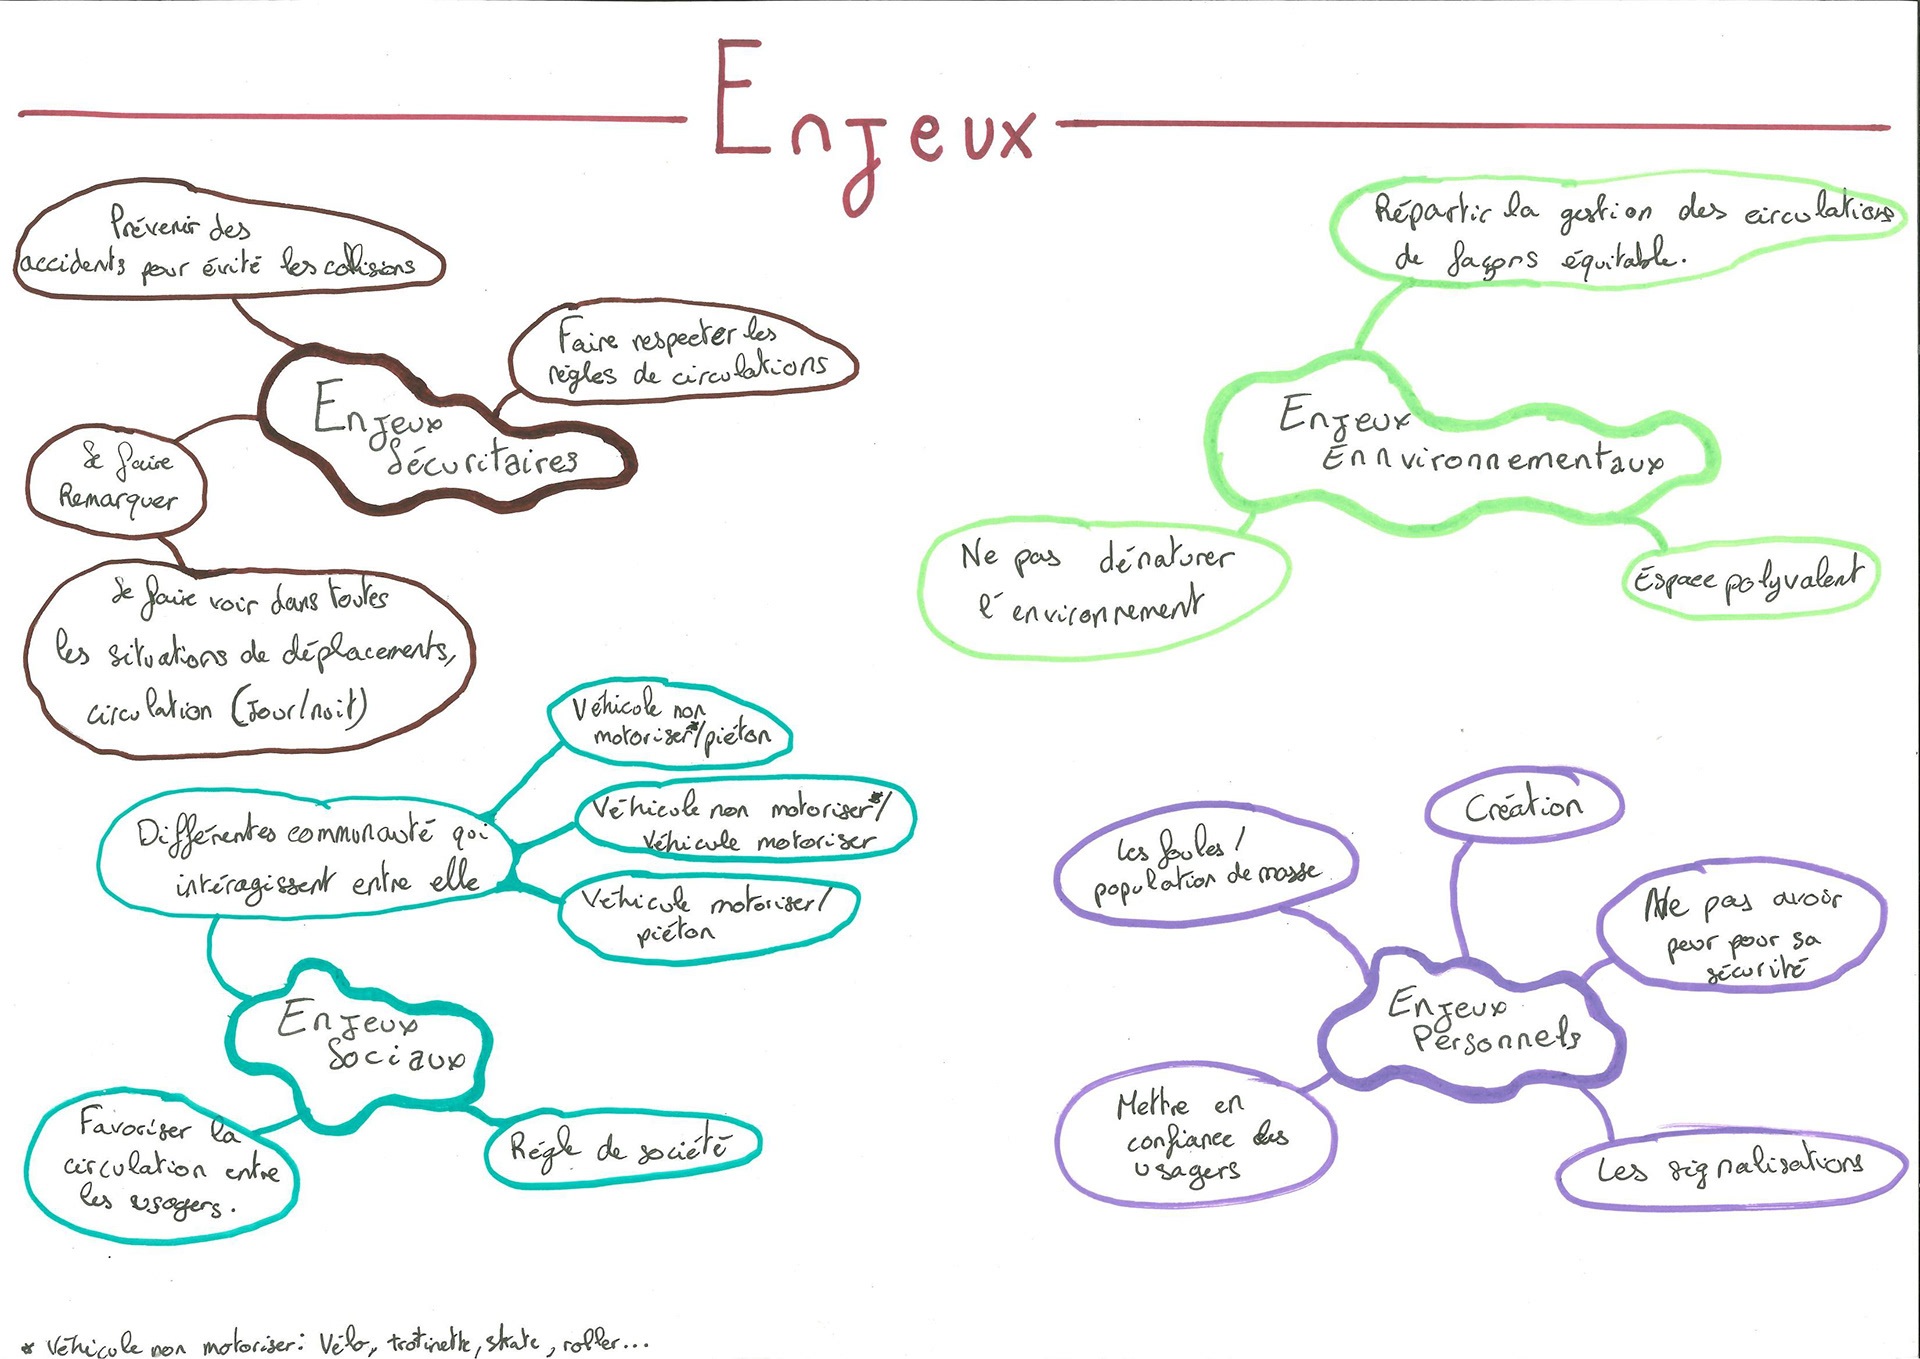 Enjeux
Prévenir des
accidents pour évité les collisions
Faire respecter les
règles de circulations
Enjeux
Sécuritaires
Se faire
Remarquer
Se faire voir dans toutes
les situations de déplacements,
circulation (Jour/nuit)
Répartir la gestion des circulations
de façons équitable.
Enjeux
Ennvironnementaux
Ne pas dénaturer
l'environnement
Espace polyvalent
Véhicule non
motoriser*/piéton
Véhicule non motoriser*/
Véhicule motoriser
Véhicule motoriser/
piéton
Différentes communauté qui
intéragissent entre elle
Enjeux
Sociaux
Favoriser la
circulation entre
les usagers.
Régle de société
Les foules/
population de masse
Création
Ne pas avoir
peur pour sa
sécurité
Enjeux
Personnels
Mettre en
confiance les
usagers
Les signalisations
* Véhicule non motoriser: Vélo, trotinette, skate, roller...